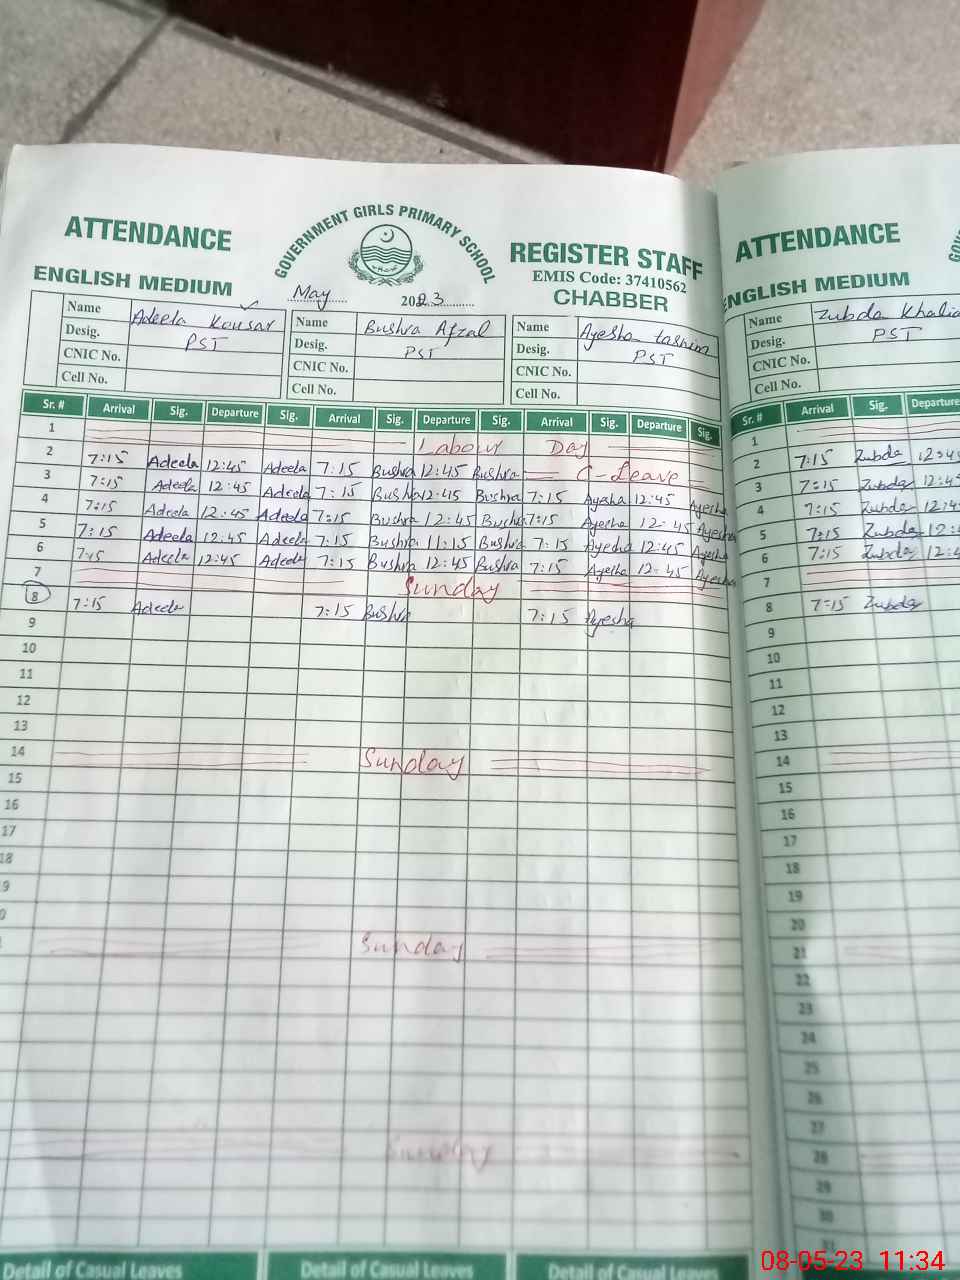 ATTENDANCE
GOVERNMENT GIRLS PRIMARY SCHOOL
REGISTER STAFF
ENGLISH MEDIUM
EMIS Code: 37410562
May 2023
CHABBER
Name Adeela Kousar
Desig. PST
CNIC No.
Cell No.
Name Bushra Afzal
Desig. PST
CNIC No.
Cell No.
Name Ayesha tasnim
Desig. PST
CNIC No.
Cell No.
Sr. # Arrival Sig. Departure Sig. Arrival Sig. Departure Sig. Arrival Sig. Departure Sig.
1 Labour Day
2 7:15 Adeela 12:45 Adeela 7:15 Bushra 12:45 Bushra C-Leave
3 7:15 Adeela 12:45 Adeela 7:15 Bushra 12:45 Bushra 7:15 Ayesha 12:45 Ayesha
4 7:15 Adeela 12:45 Adeela 7:15 Bushra 12:45 Bushra 7:15 Ayesha 12:45 Ayesha
5 7:15 Adeela 12:45 Adeela 7:15 Bushra 11:15 Bushra 7:15 Ayesha 12:45 Ayesha
6 7:15 Adeela 12:45 Adeela 7:15 Bushra 12:45 Bushra 7:15 Ayesha 12:45 Ayesha
7 Sunday
8 7:15 Adeela 7:15 Bushra 7:15 Ayesha
9
10
11
12
13
14 Sunday
15
16
17
18
9
0
Sunday
Sunday
Detail of Casual Leaves
Detail of Casual Leaves
Detail of Casual Leaves
ATTENDANCE
ENGLISH MEDIUM
Name Zubda Khalid
Desig. PST
CNIC No.
Cell No.
Sr. # Arrival Sig. Departure
1
2 7:15 Zubda 12:45
3 7:15 Zubda 12:45
4 7:15 Zubda 12:4
5 7:15 Zubda 12:
6 7:15 Zubda 12:4
7
8 7:15 Zubda
9
10
11
12
13
14
15
16
17
18
19
20
21
22
23
24
25
26
27
28
29
30
31
08-05-23 11:34